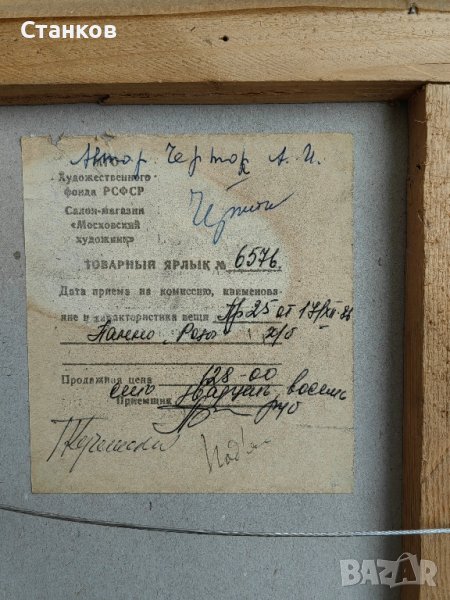 Станков
Автор. Черток А. И.
Художественного
фонда РСФСР
Салон-магазин
«Московский
художник»
ТОВАРНЫЙ ЯРЛЫК № 6576
Дата приема на комиссию, наименова-
ние и характеристика вещи Пр 25 от
Панно "Розы" х/б
Продажная цена 128-00
сто двадцать восемь
Приемщик руб
BAZAR